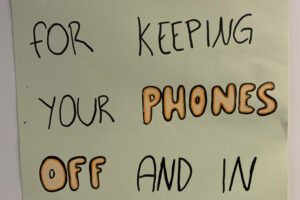 FOR KEEPING
YOUR PHONES
OFF AND IN